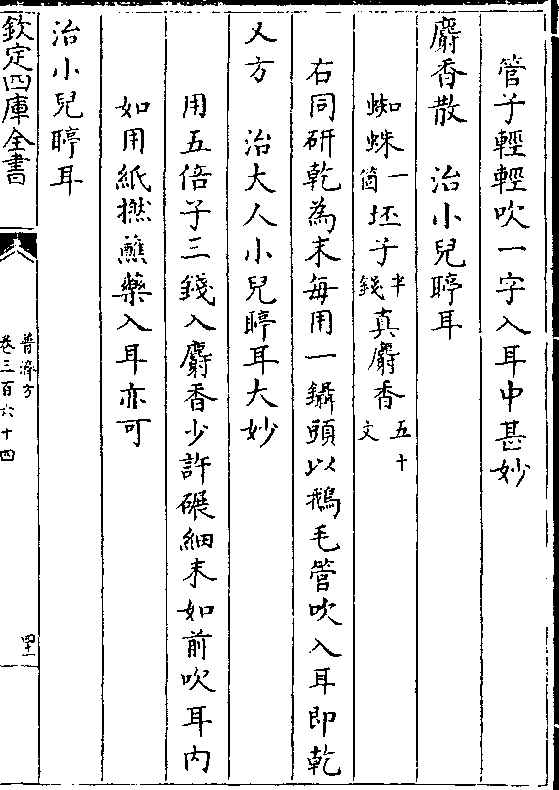 管子輕輕吹一字入耳中甚妙
麝香散　治小兒聤耳
蜘蛛一箇坯子半錢真麝香五十文
右同研乾為末每用一鑷頭以鵝毛管吹入耳即乾
又方　治大人小兒聤耳大妙
用五倍子三錢入麝香少許碾細末如前吹耳內
如用紙撚蘸藥入耳亦可
治小兒聤耳
欽定四庫全書
普濟方
卷三百六十四